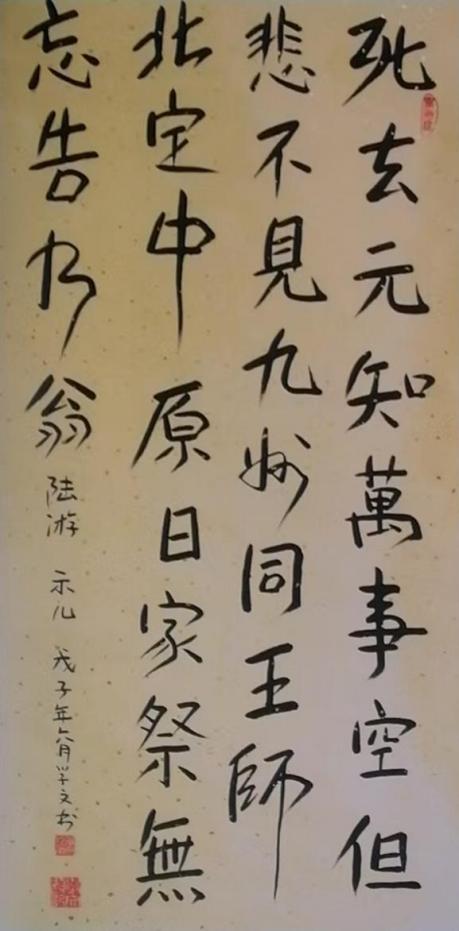 死去元知萬事空但
悲不見九州同王師
北定中原日家祭無
忘告乃翁
陆游 示儿 戊子年六月学文书